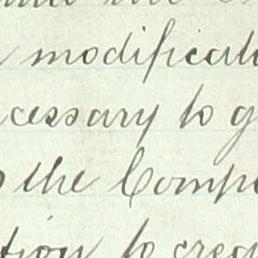 modificati
cessary to g
the Compa
tion to crea